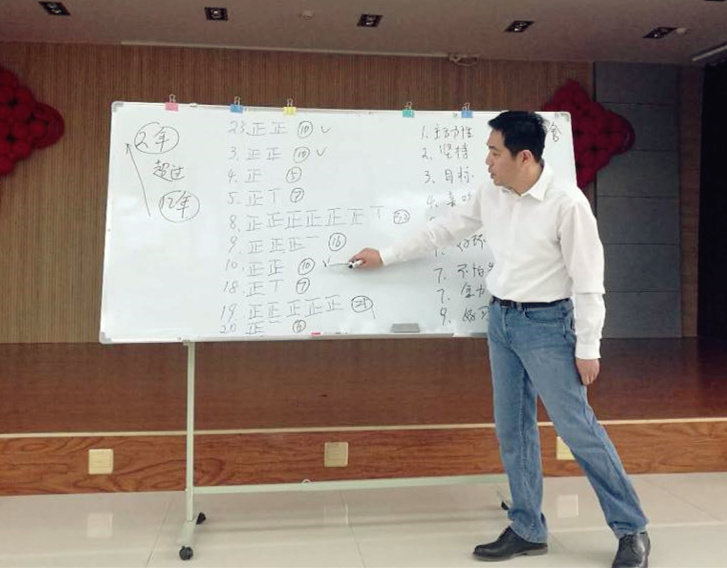 2年
超过
12年
23.正正 ⑩ ✓
3.正正 ⑩ ✓
4.正 ⑤
5.正丅 ⑦
8.正正正正正正丅
9.正正正一 ⑯
10.正正 ⑩ ✓
18.正丅 ⑦
19.正正正正正
20 正
1.主动性
2.坚持
3.目标
4.
7.不怕
7.
9.